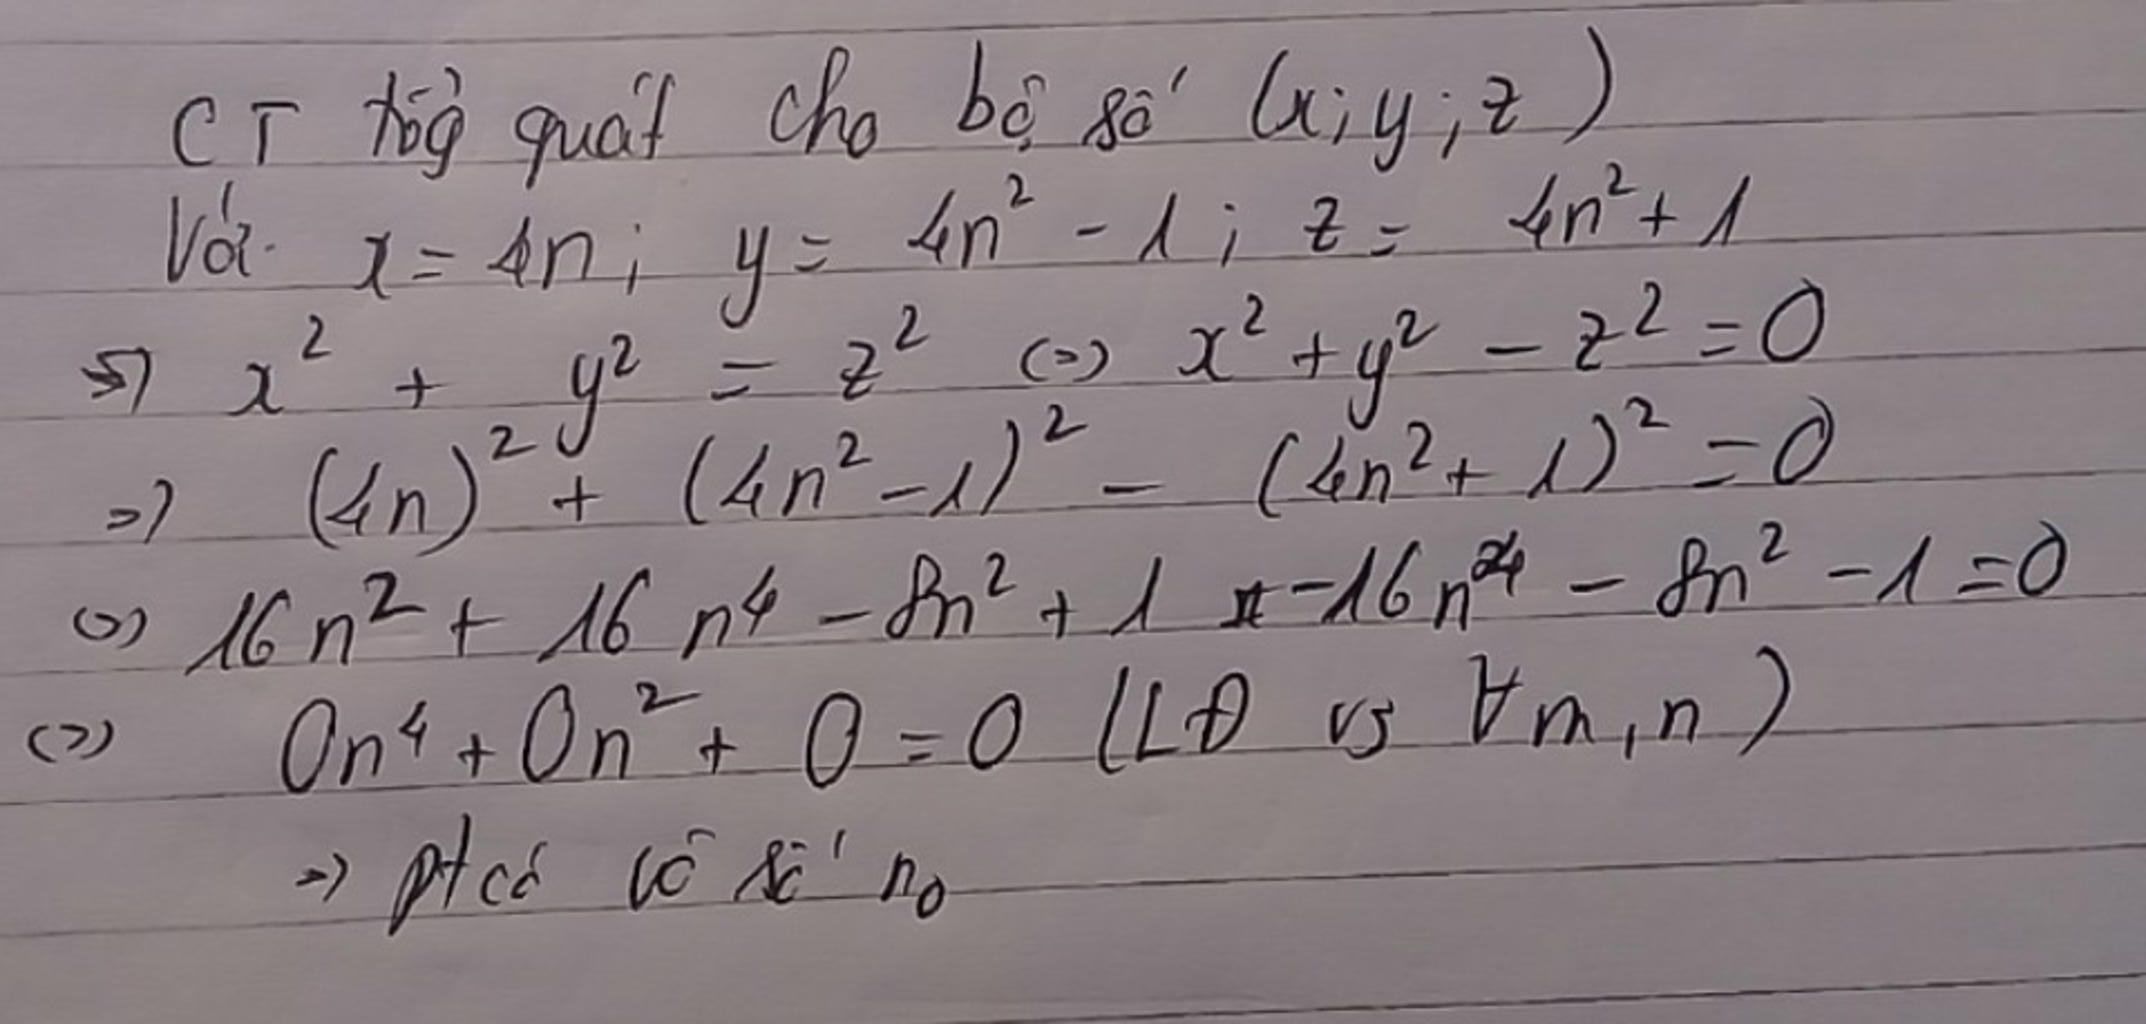 CT tổg quát cho bộ số (x; y; z)
Với x = 4n; y = 4n² - 1; z = 4n² + 1
=> x² + y² = z² <=> x² + y² - z² = 0
=> (4n)² + (4n² - 1)² - (4n² + 1)² = 0
<=> 16n² + 16n⁴ - 8n² + 1 - 16n⁴ - 8n² - 1 = 0
<=> 0n⁴ + 0n² + 0 = 0 (LĐ vs ∀m, n)
=> pt có vô số n₀